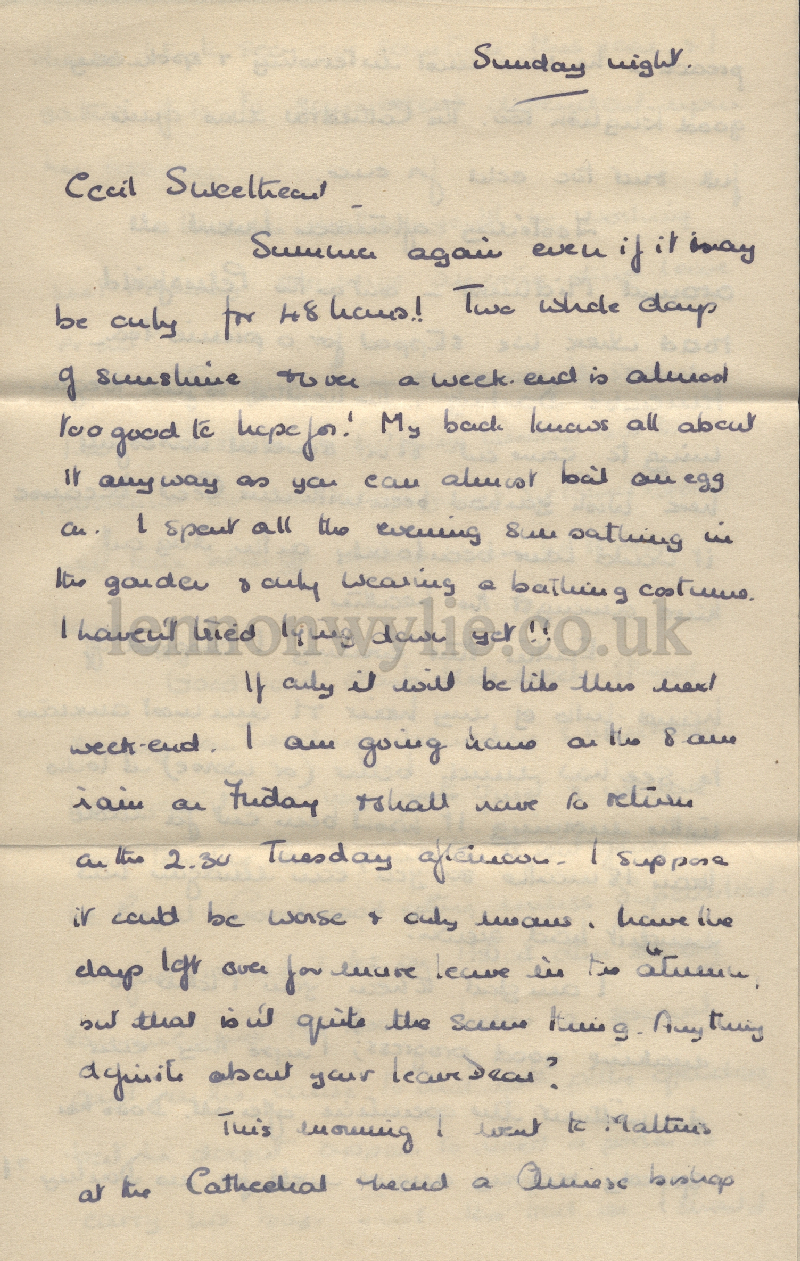 Sunday night.
Cecil Sweetheart -
Summer again even if it may
be only for 48 hours!! Two whole days
of sunshine & over a week-end is almost
too good to hope for! My back knows all about
it anyway as you can almost boil an egg
on. I spent all the evening sun bathing in
the garden & only wearing a bathing costume.
I haven't tried lying down yet!!
lennonwylie.co.uk
If only it will be like this next
week-end. I am going home on the 8 am
train on Friday & shall have to return
on the 2.30 Tuesday afternoon. I suppose
it could be worse & only means I have five
days left over for more leave in the autumn,
but that isn't quite the same thing. Anything
definite about your leave Dear?
This morning I went to Mattins
at the Cathedral & heard a Chinese bishop